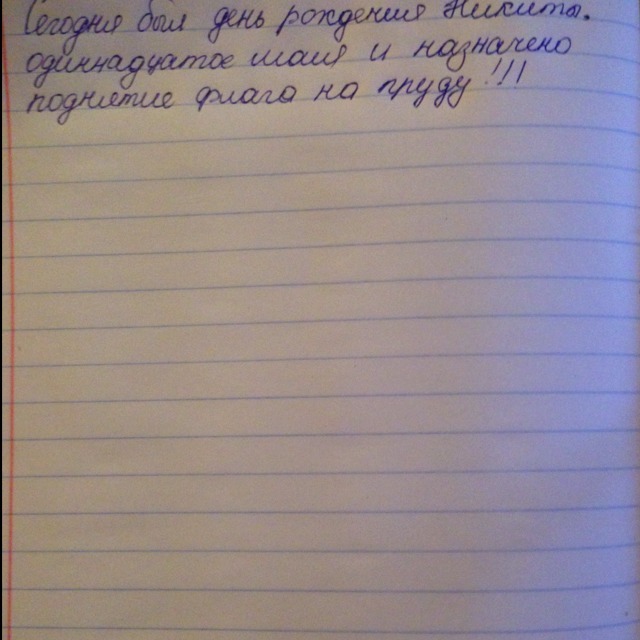 Сегодня был день рождения Никиты.
одиннадцатое мая и назначено
поднятие флага на пруду!!!